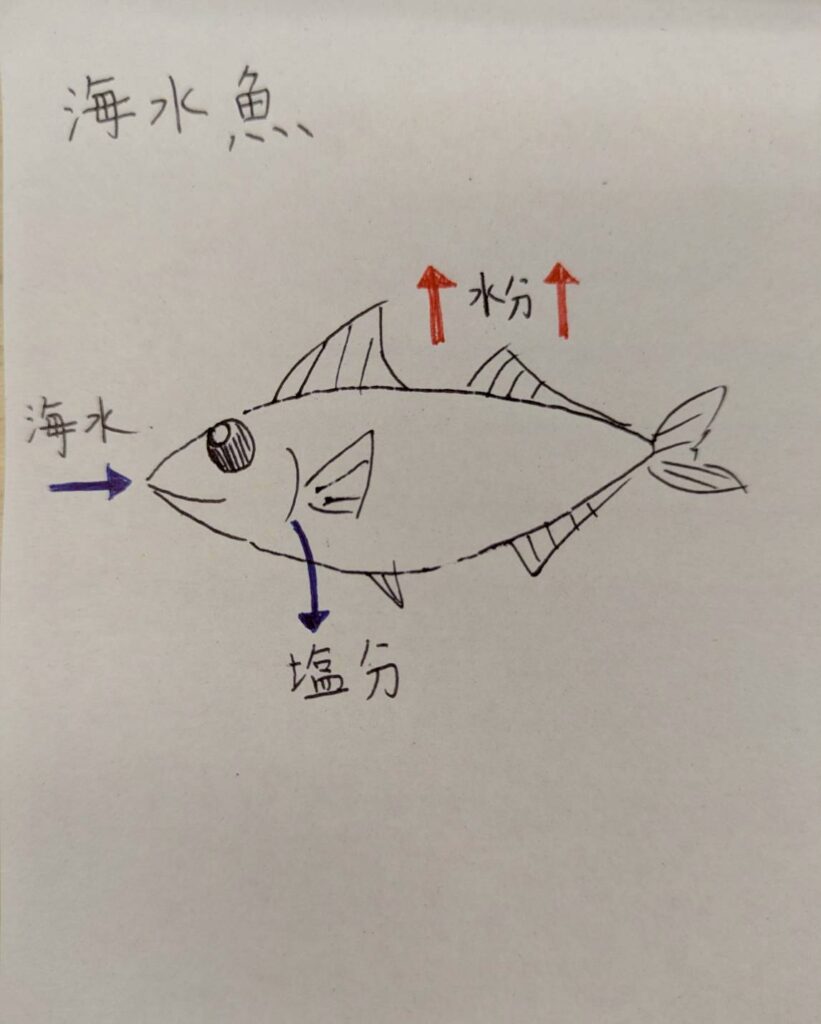 海水魚
水分
海水
塩分